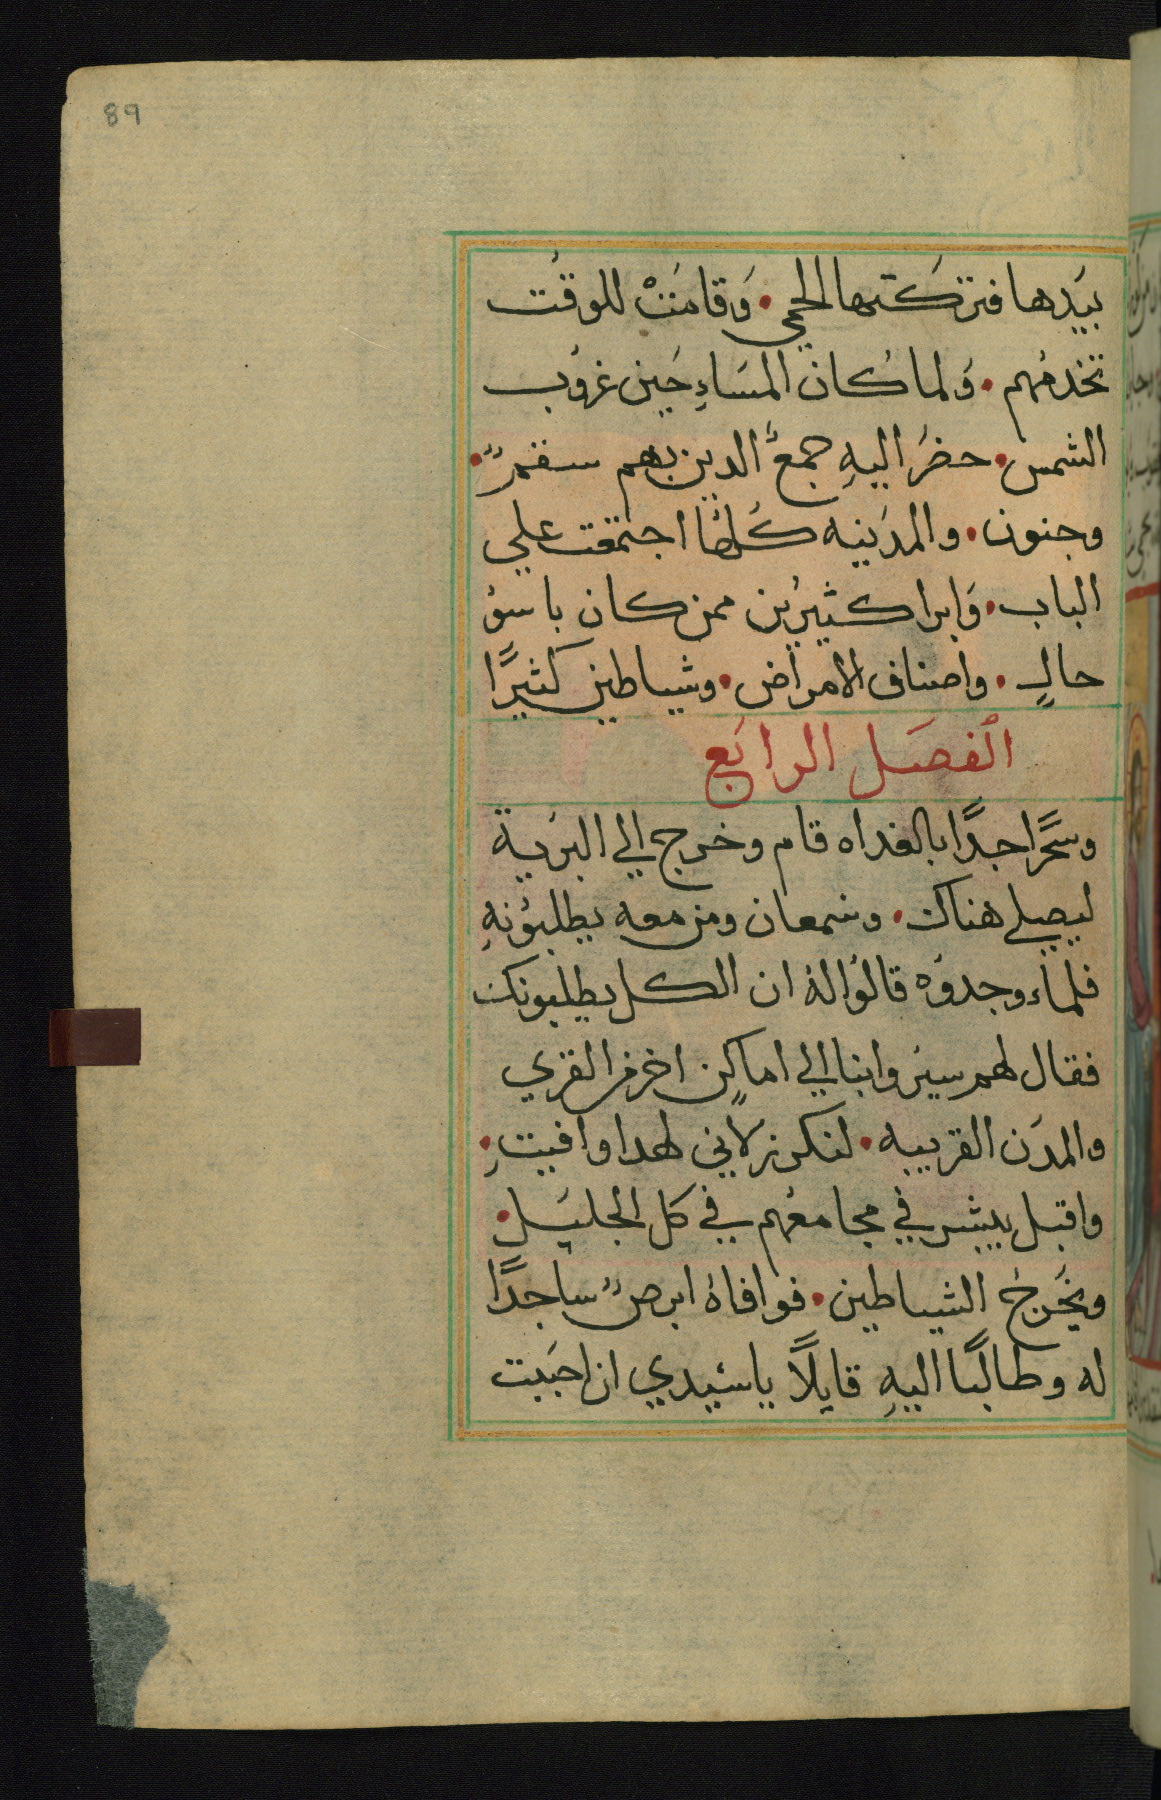 89
بيَدِها فتركَتها الحمي • وَقامَتْ للوقُت
تخدمُهم • وَلما كان المسَاءِ حَين غروُب
الشمس • حضرَ اليهِ جمعً الدين بهم سقمٌ •
وجنون • والمدَينه كلُها اجتمعت علي
الباب • وَابرا كثيرُين ممن كان باسوُ
حالٍ • واصناف الامراض • وشياطين كثيرًا
الفصَل الرابَع
وسَحًرا جدًا بالغداه قام وخرج الي البرَية
ليصلي هناك • وسمعان ومن معه يطلبوُنهِ
فلماء وجدوَه قالوُا لهُ ان الكل يطلبونك
فقال لهم سيرَوا بنا الي اماكِن اخر من القري
والمدَن القريبه • لنكرز لاني لهدا وافيتِ •
واقبل يبشر في مجامعُهم في كل الجليَل •
ويخُرجُ الشياطين • فوافاهُ ابرصٌ ساجدًا
له وطالبًا اليهِ قايلًا ياسَيدي ان احبَبت